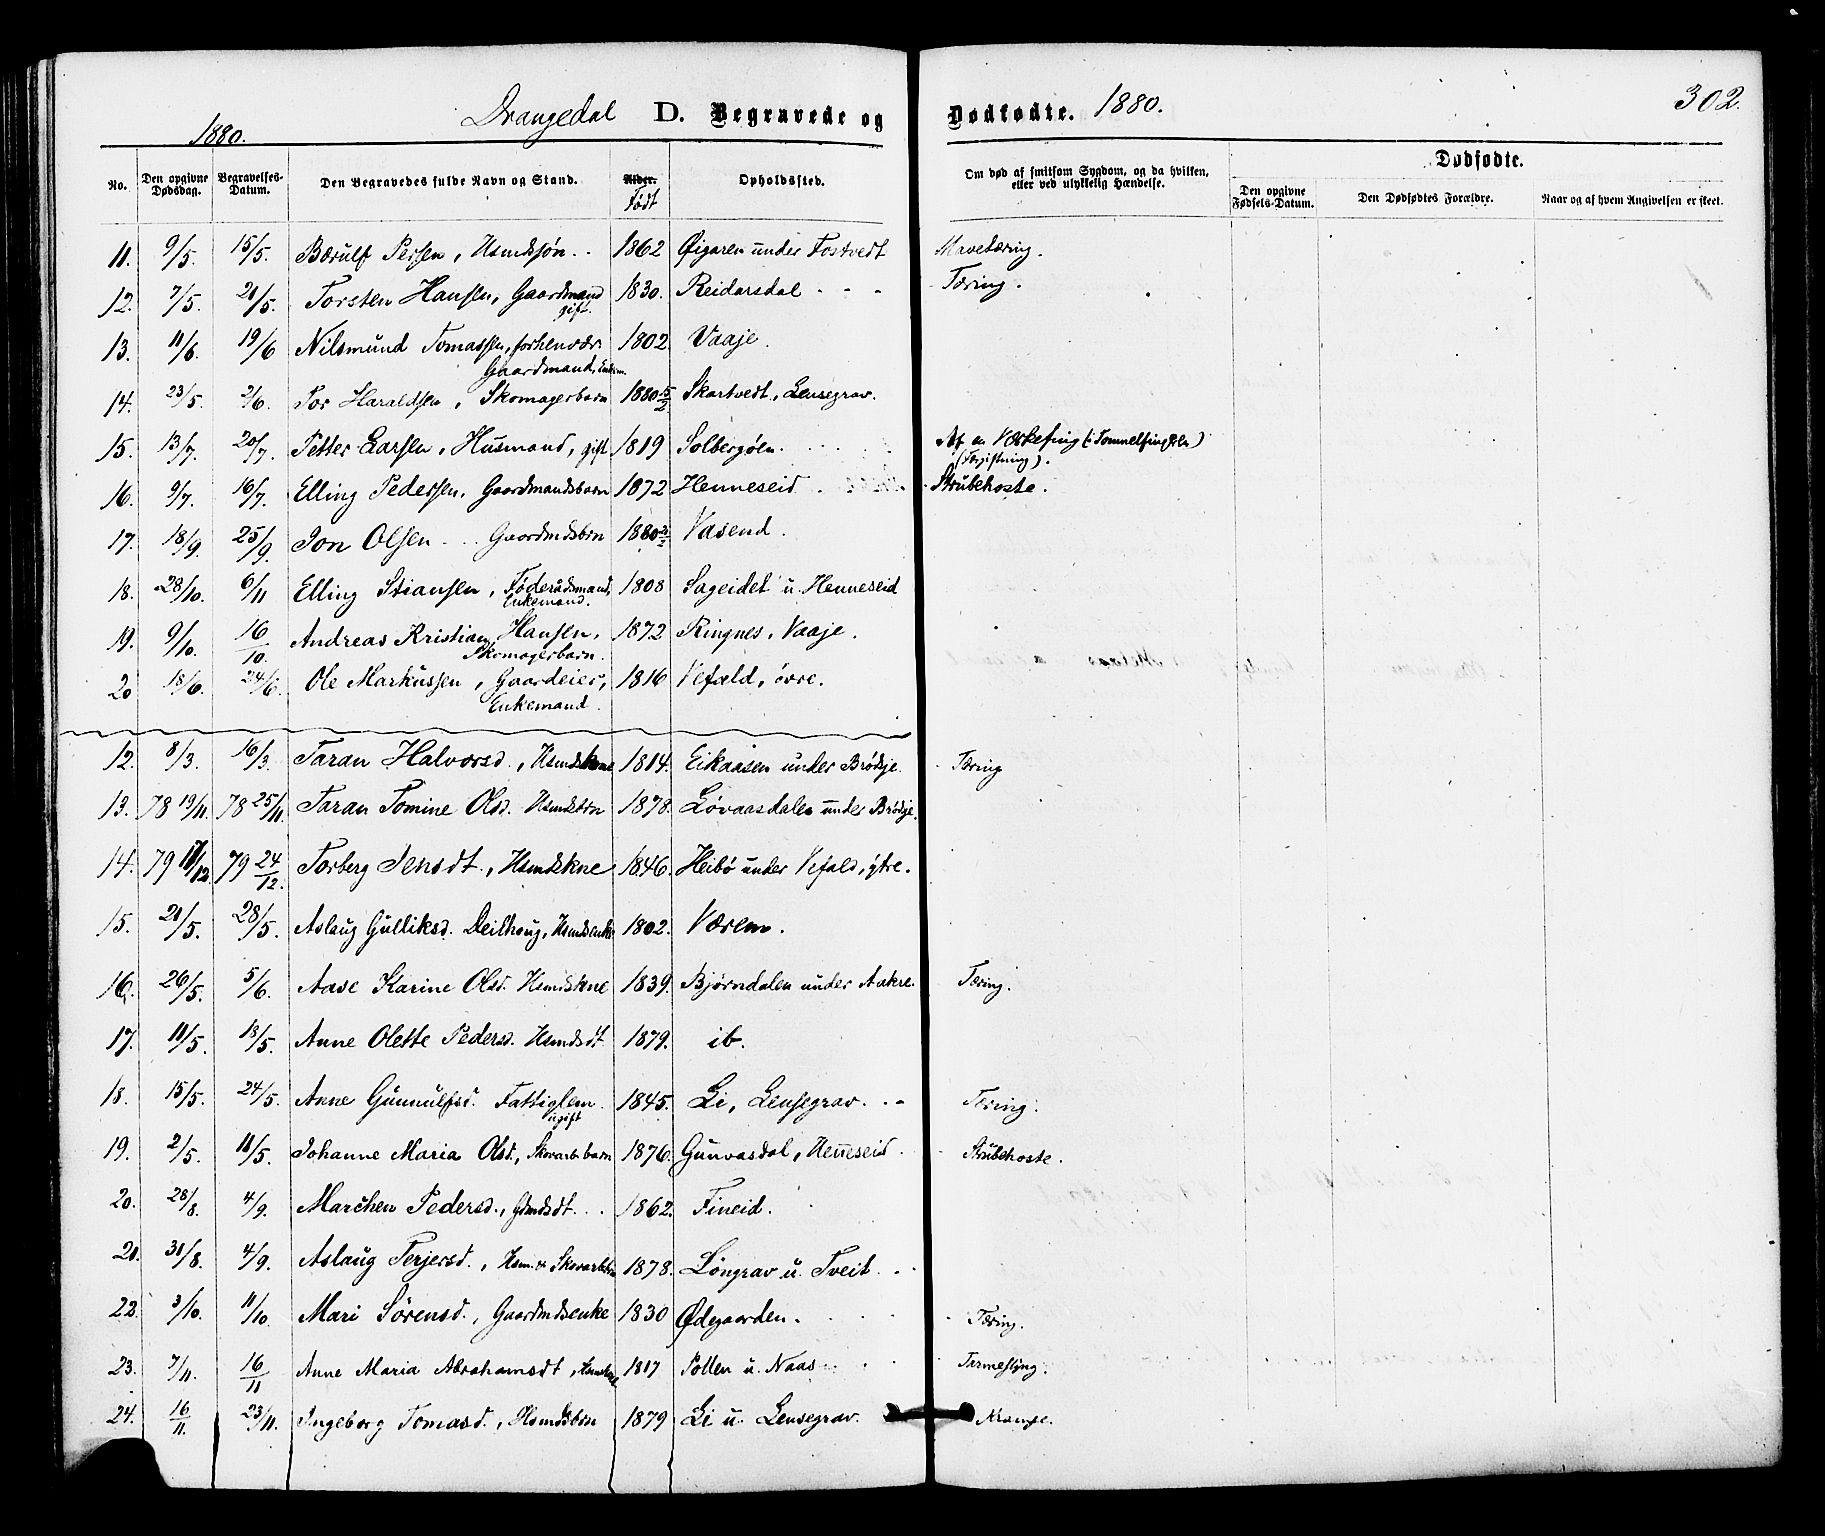 Drangedal D. Begravede og Dødfødte. 1880. 302.
1880.
No. Den opgivne Dødsdag. Begravelses-Datum. Den Begravedes fulde Navn og Stand. Alder. Født Opholdssted. Om død af smitsom Sygdom, og da hvilken, eller ved ulykkelig Hændelse. Dødfødte. Den opgivne Fødsels-Datum. Den Dødfødtes Forældre. Naar og af hvem Angivelsen er skeet.
11. 9/5. 15/5. Bærulf Persen, Hsmdssøn.. 1862 Øigaren under Tostvedt Mavetæring.
12. 7/5. 21/5. Torsten Hansen, Gaardmand gift. 1830. Reidarsdal - - - Tæring.
13. 11/6. 19/6 Nilsmund Tomassen, forhenvær. Gaardmand, Enkem. 1802 Vaaje.
14. 23/5. 2/6. Tor Haraldsen, Skomagerbarn 1880 5/2 Skartvedt, Lensegrav.
15. 13/7. 20/7. Petter Larsen, Husmand, gift 1819 Solbergølen. Af en Værkefing (: Tommelfingeren) (Forgiftning).
16. 9/7. 16/7. Elling Pedersen, Gaardmandsbarn 1872 Henneseid. Strubehoste.
17. 18/9. 25/9. Jon Olsen - .. Gaardmdsbrn 1880 Vasend.
18. 28/10. 6/11 Elling Stiansen, Føderådsmand, Enkemand. 1808 Sageidet u. Henneseid
19. 9/10. 16/10. Andreas Kristian Hansen, Skomagerbarn. 1872 Ringnes, Vaaje.
20 18/6. 24/6. Ole Markussen, Gaardeier, Enkemand. 1816 Vefald, övre.
12. 8/3. 16/3. Taran Halvorsd., Hsmdskne 1814. Eikaasen under Brödsje. Tæring
13. 78 19/11. 78 25/11. Taran Tomine Olsd. Hsmdsbrn 1878. Løvaasdalen under Brødsje.
14. 79 /12 79 24/12. Torberg Jensdt., Hsmdskne 1846. Heibö under Vefald, ytre.
15. 21/5. 28/5. Aslaug Gulliksd. Deilhaug, Hsmdsenke 1802. Værem.
16. 26/5. 5/6. Aase Karine Olsd. Hsmdskne 1839. Bjørndalen under Aakre. Tæring.
17. 11/5. 18/5. Anne Olette Pedersd. Hsmdsdt. 1879. ib.
18. 15/5. 24/5. Anne Gunnulfsd. Fattiglem. ugift 1845. Li, Lensegrav. . - Tæring.
19. 2/5. 11/5. Johanne Maria Olsd., Skovarb.barn 1876. Gunvasdal, Henneseid. Strubehoste.
20. 28/8. 4/9. Marchen Pedersd., Gdmdsdt. .. 1862. Fineid.
21. 31/8. 4/9. Aslaug Terjersd., Hsm. & Skovarbbrn 1878. Löngrav u. Tveit. . .
22. 3/10. 11/10. Mari Sörensd., Gaardmdsenke 1830 Ødegaarden. Tæring.
23. 7/11. 16/11 Anne Maria Abrahamsdt, 1817 Pollen u. Naas Tarmeslyng.
24. 16/11. 23/11. Ingeborg Tomasd., Hsmdsbrn 1879 Li u. Lensegrav. Krampe.